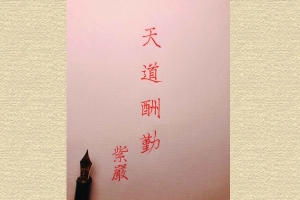 天道酬勤
紫嚴